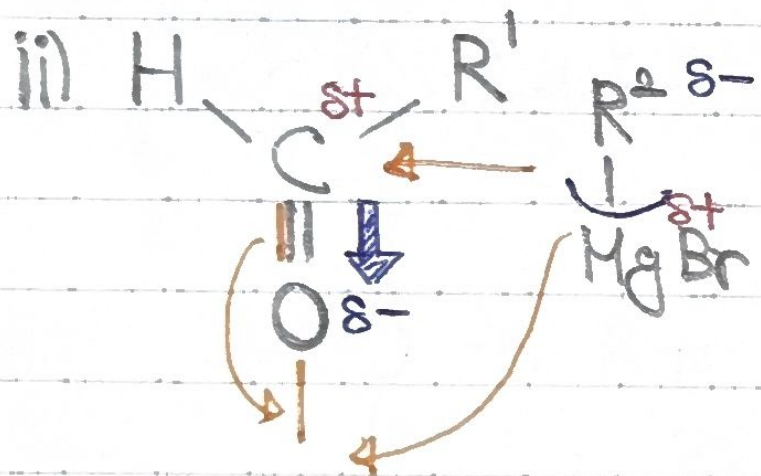 ii) H R¹
δ+ R² δ-
C
δ+
Mg Br
O δ-